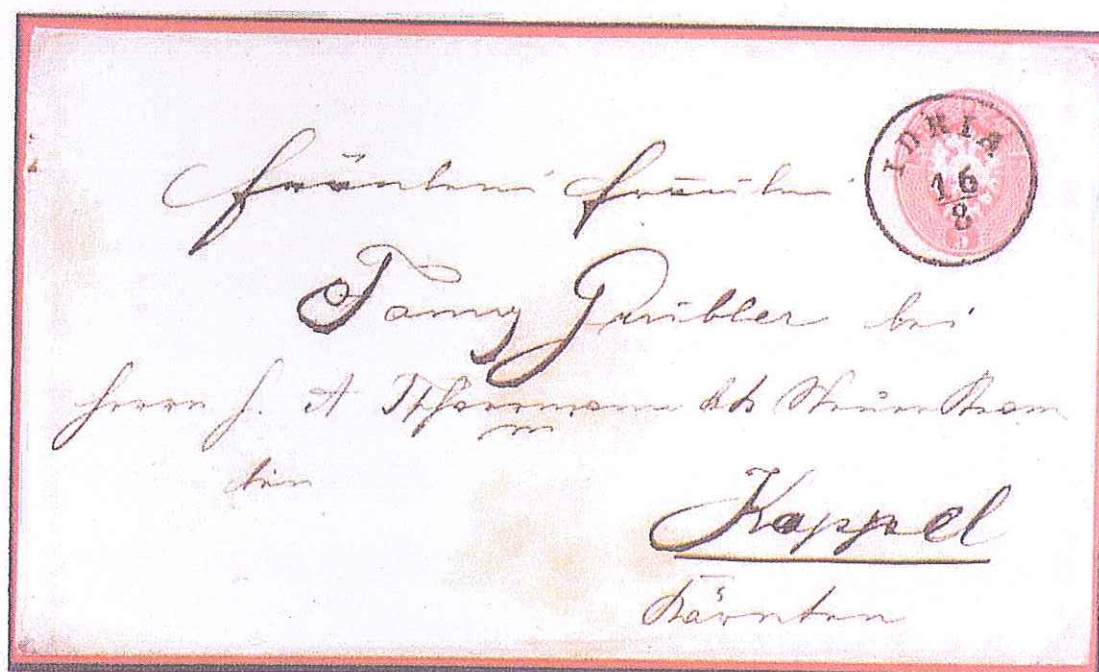 IDRIA
16
8
5
Fräulein Fräulein
Fanny Gaübler bei
Herrn J. A kk
Kappel
Kärnten